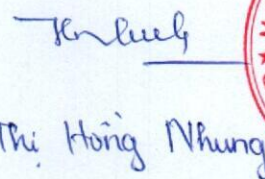 Thị Hồng Nhung